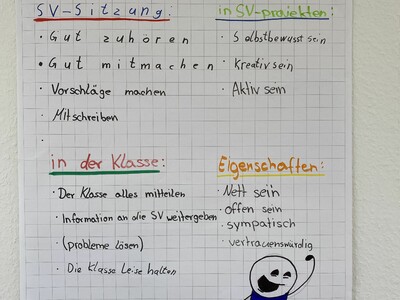 SV-Sitzung:
· Gut zuhören
· Gut mitmachen
· Vorschläge machen
· Mitschreiben
·
in SV-projekten:
· Selbstbewusst sein
· Kreativ sein
· Aktiv sein
in der Klasse:
· Der Klasse alles mitteilen
· Information an die SV weitergeben
· (probleme lösen)
· Die Klasse Leise halten
Eigenschaften:
· Nett sein
· Offen sein
· sympatisch
· vertrauenswürdig